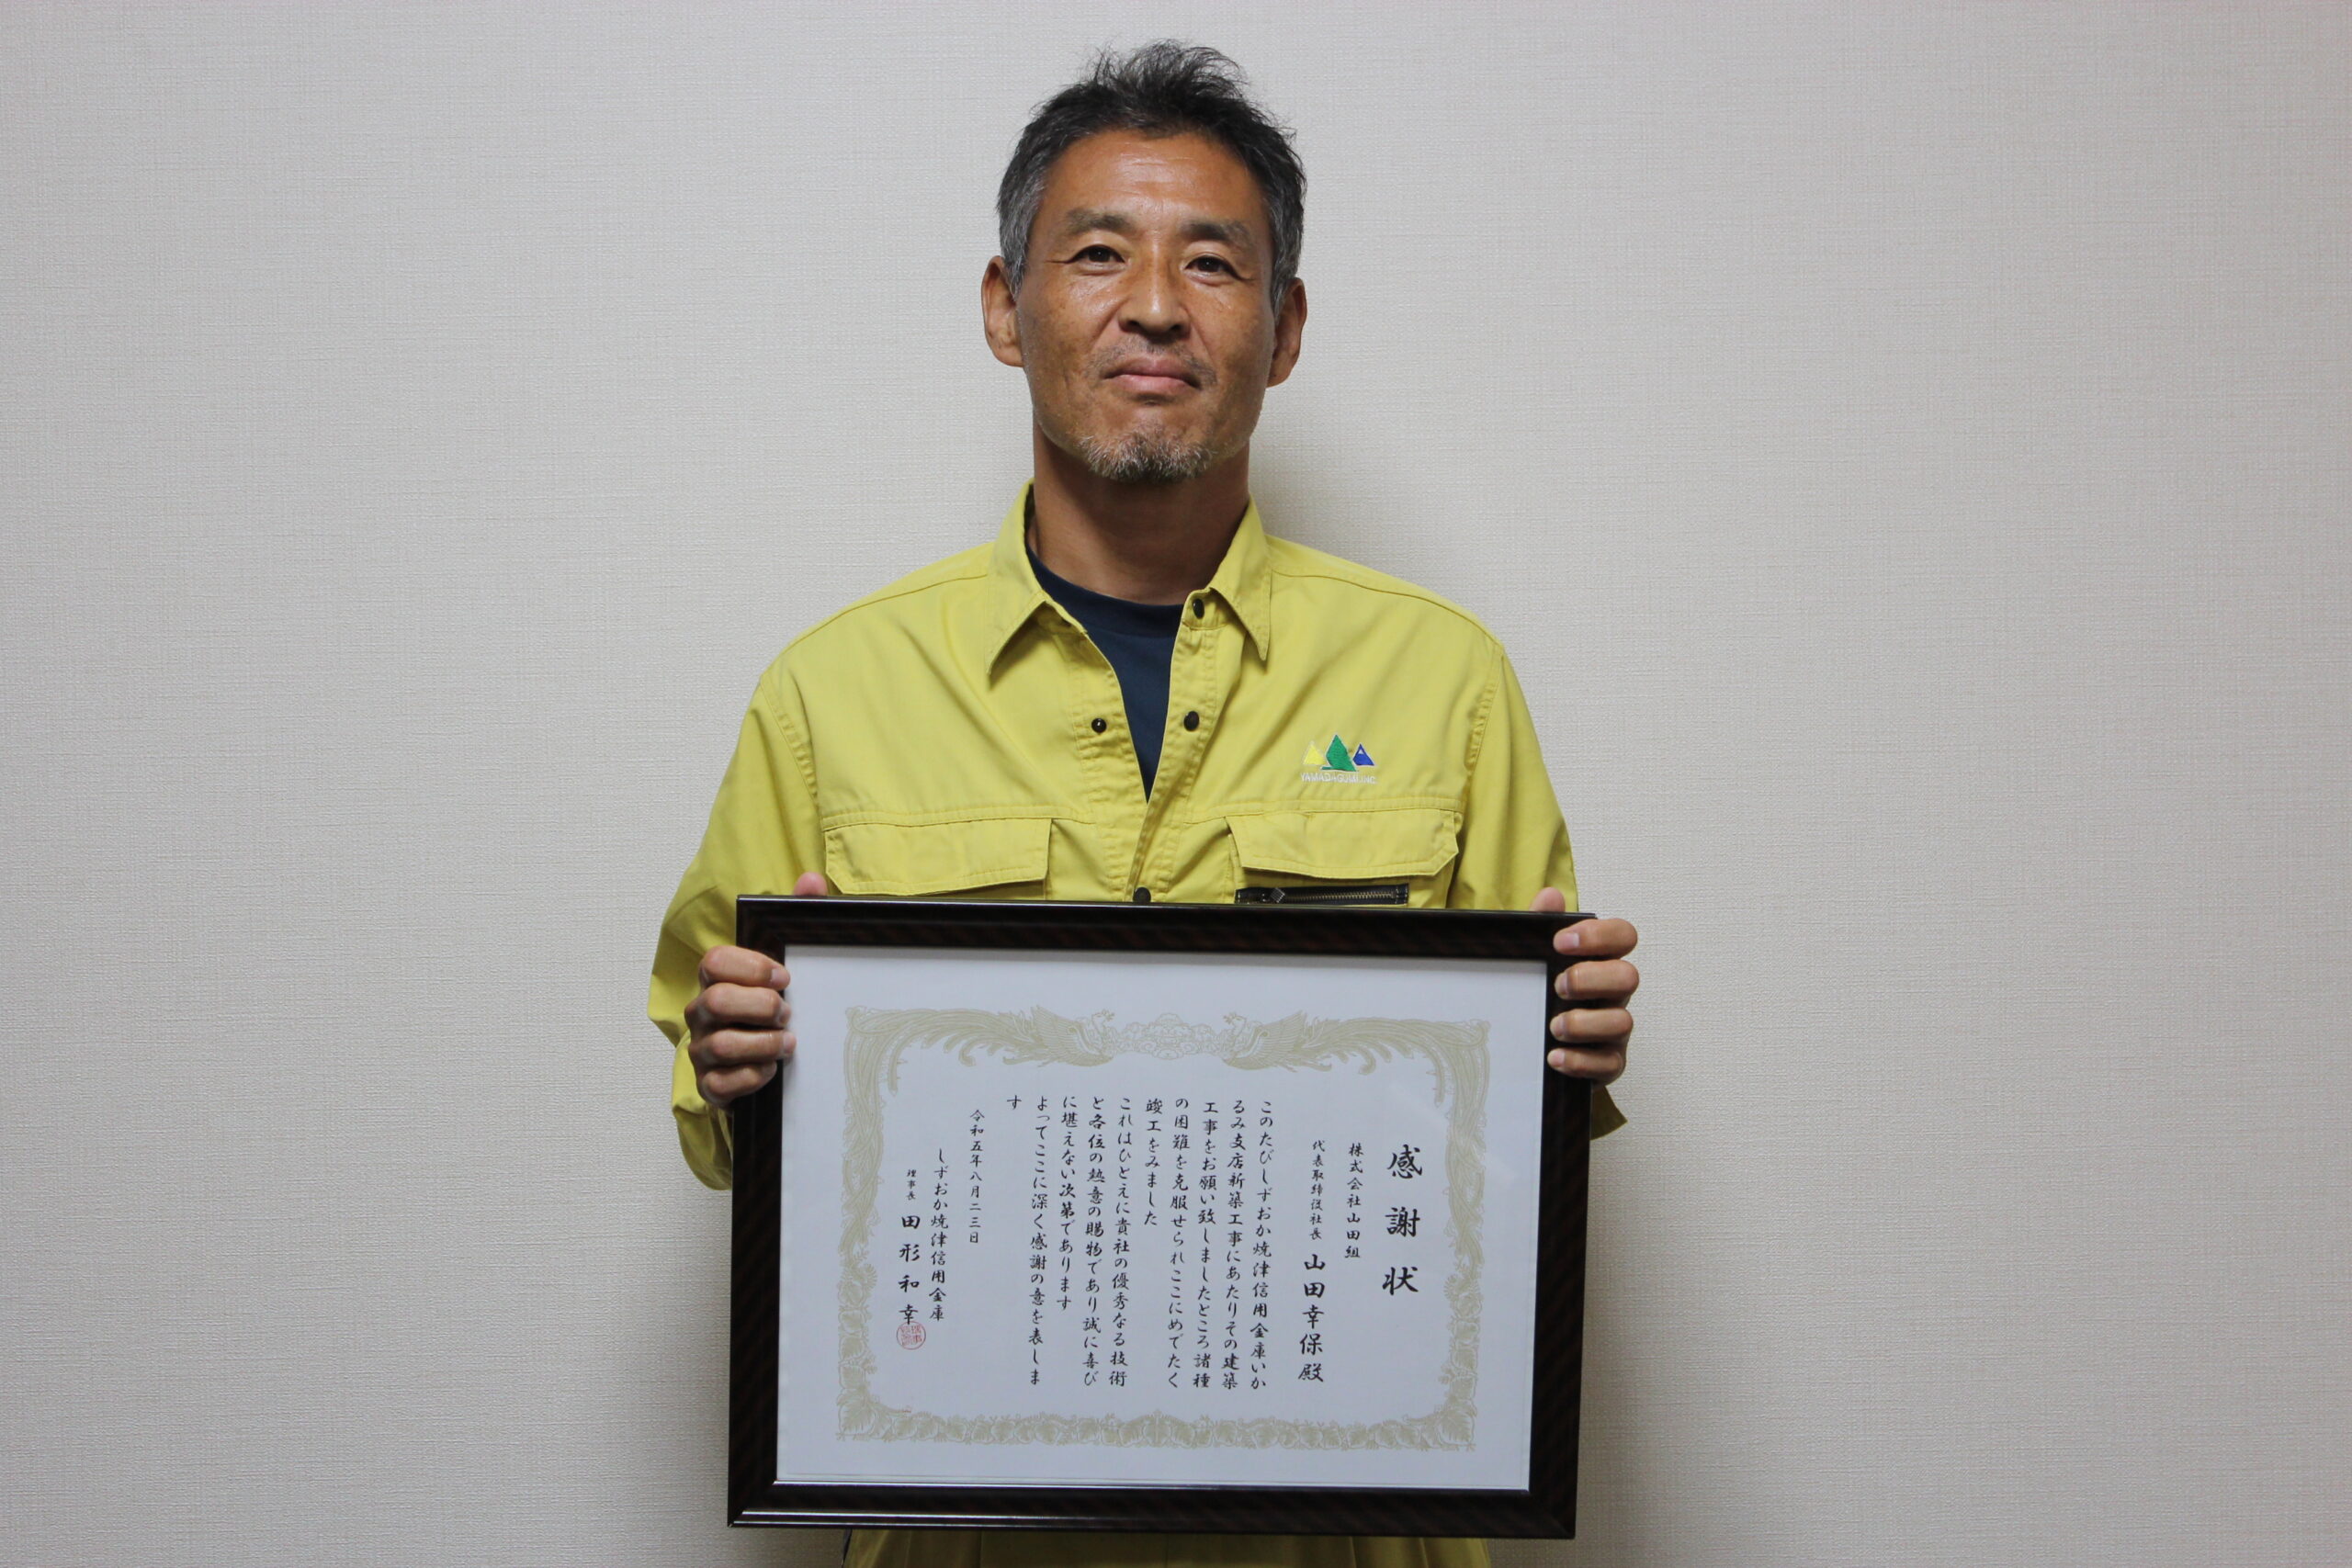 YAMADAGUMI.INC
感謝状
株式会社山田組
代表取締役社長 山田幸保殿
このたびしずおか焼津信用金庫いか
るみ支店新築工事にあたりその建築
工事をお願い致しましたところ諸種
の困難を克服せられここにめでたく
竣工をみました
これはひとえに貴社の優秀なる技術
と各位の熱意の賜物であり誠に喜び
に堪えない次第であります
よってここに深く感謝の意を表しま
す
令和五年八月二三日
しずおか焼津信用金庫
理事長 田形和幸